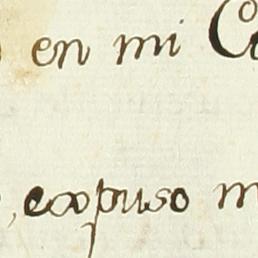 en mi
, expuso